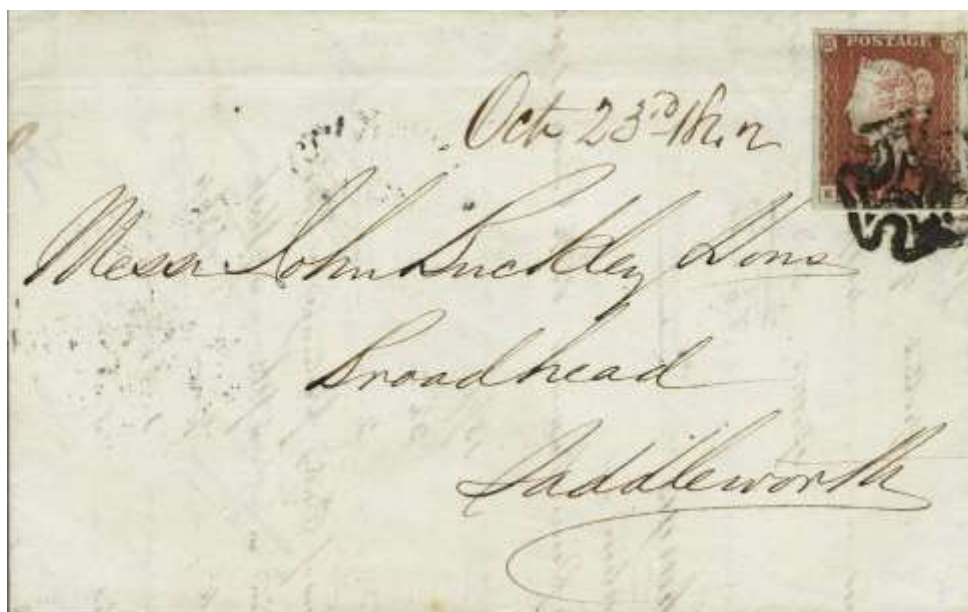 POSTAGE
Oct 23rd 1842
Messrs John Buckley & Sons
Broadhead
Saddleworth